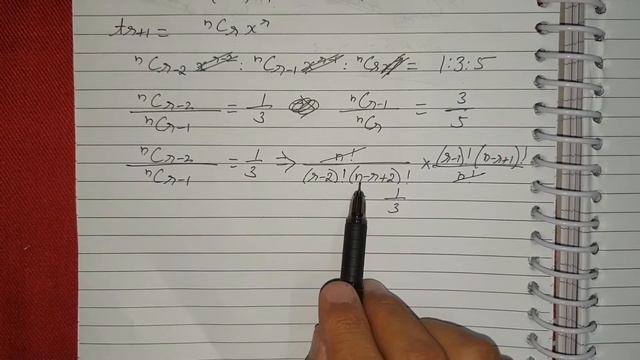 t_{r+1} = ⁿC_r xʳ
ⁿC_{r-2} x^{r-2} : ⁿC_{r-1} x^{r-1} : ⁿC_r xʳ = 1:3:5
ⁿC_{r-2} / ⁿC_{r-1} = 1/3 ⁿC_{r-1} / ⁿC_r = 3/5
ⁿC_{r-2} / ⁿC_{r-1} = 1/3 ⇒ n! / (r-2)! (n-r+2)! × (r-1)! (n-r+1)! / n!
1/3